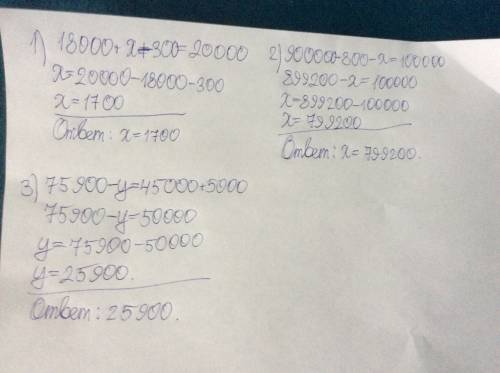 1) 18000+x+300=20000
x=20000-18000-300
x=1700
Ответ: x=1700
2) 900000-800-x=100000
899200-x=100000
x=899200-100000
x=799200
Ответ: x=799200.
3) 75900-y=45000+5000
75900-y=50000
y=75900-50000
y=25900.
Ответ: 25900.